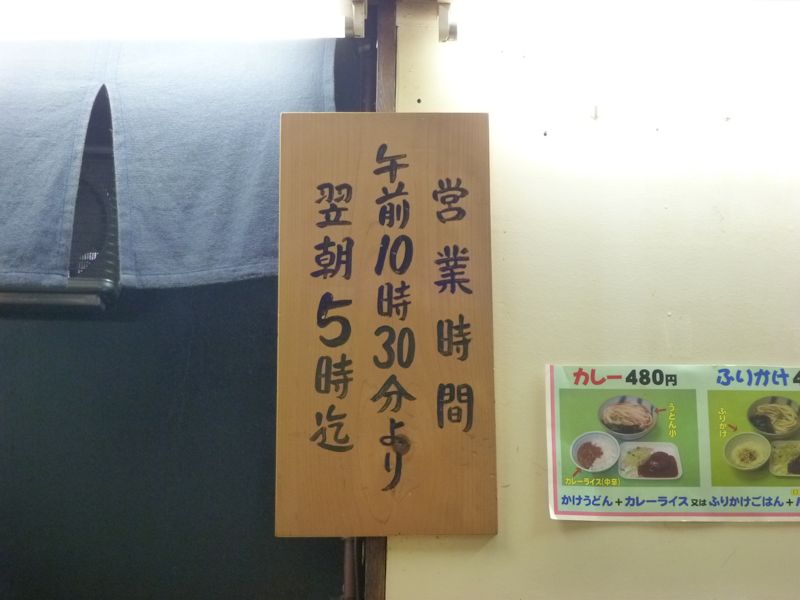 営業時間
午前10時30分より
翌朝5時迄
カレー480円
うどん小
カレーライス(中辛)
ふりかけ 4
ふりかけ
かけうどん+カレーライス又はふりかけごはん+